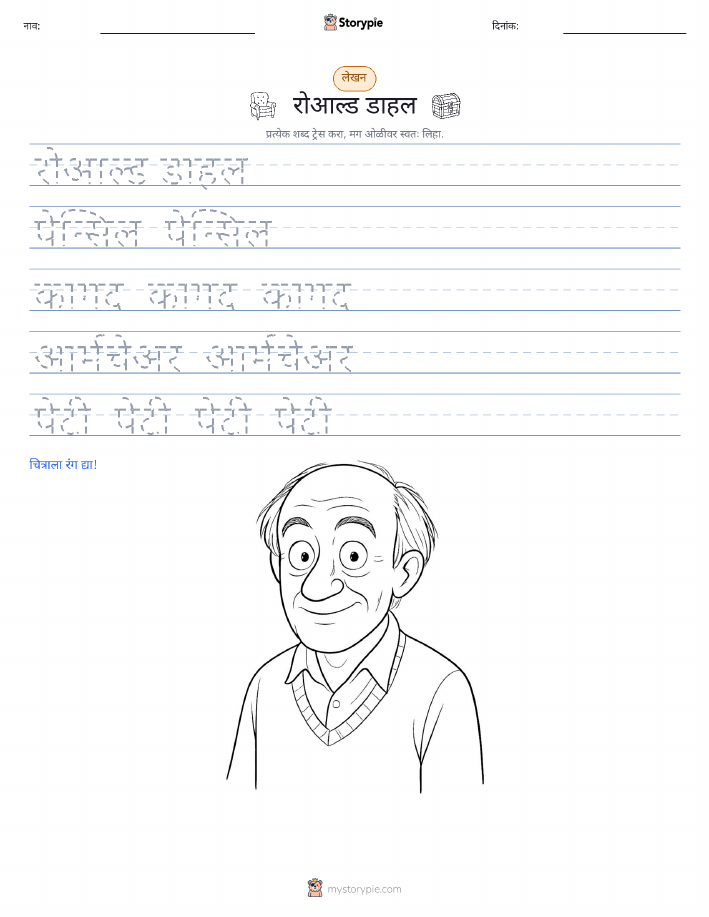 नाव: Storypie दिनांक:
लेखन
रोआल्ड डाहल
प्रत्येक शब्द ट्रेस करा, मग ओळीवर स्वतः लिहा.
रोआल्ड डाहल
पेन्सिल पेन्सिल
कागद कागद कागद
आर्मचेअर आर्मचेअर
पेटी पेटी पेटी पेटी
चित्राला रंग द्या!
mystorypie.com